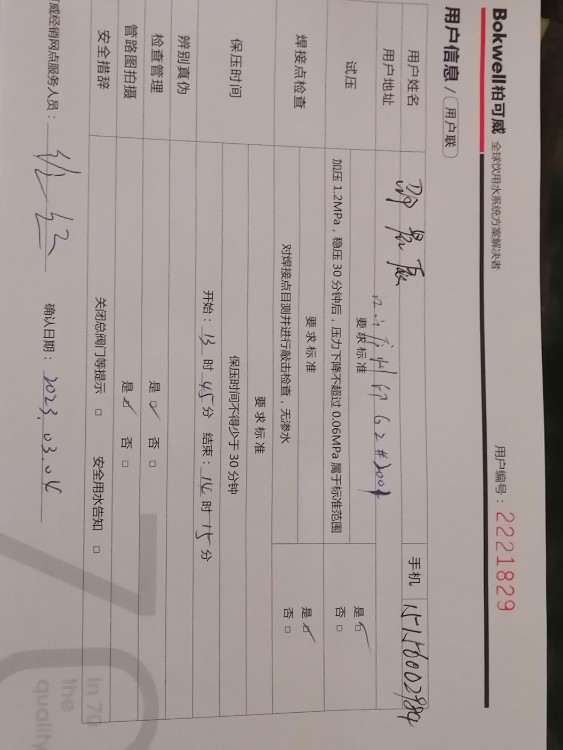 Bokwell柏可威 全球饮用水系统方案解决者 用户编号：2221829
用户信息/用户联
用户姓名 手机
用户地址 G2#
试压 要求标准 是☑
加压1.2MPa，稳压30分钟后，压力下降不超过0.06MPa属于标准范围 否□
焊接点检查 要求标准 是☑
对焊接点目测并进行敲击检查，无渗水 否□
保压时间 要求标准
保压时间不得少于30分钟
开始：13时45分 结束：14时15分
辨别真伪
检查管理 是☑ 否□
管路图拍摄 是☑ 否□
安全措辞 关闭总阀门等提示 □ 安全用水告知 □
威经销网点服务人员： 确认日期：2023.03.04
In 70
the
quality